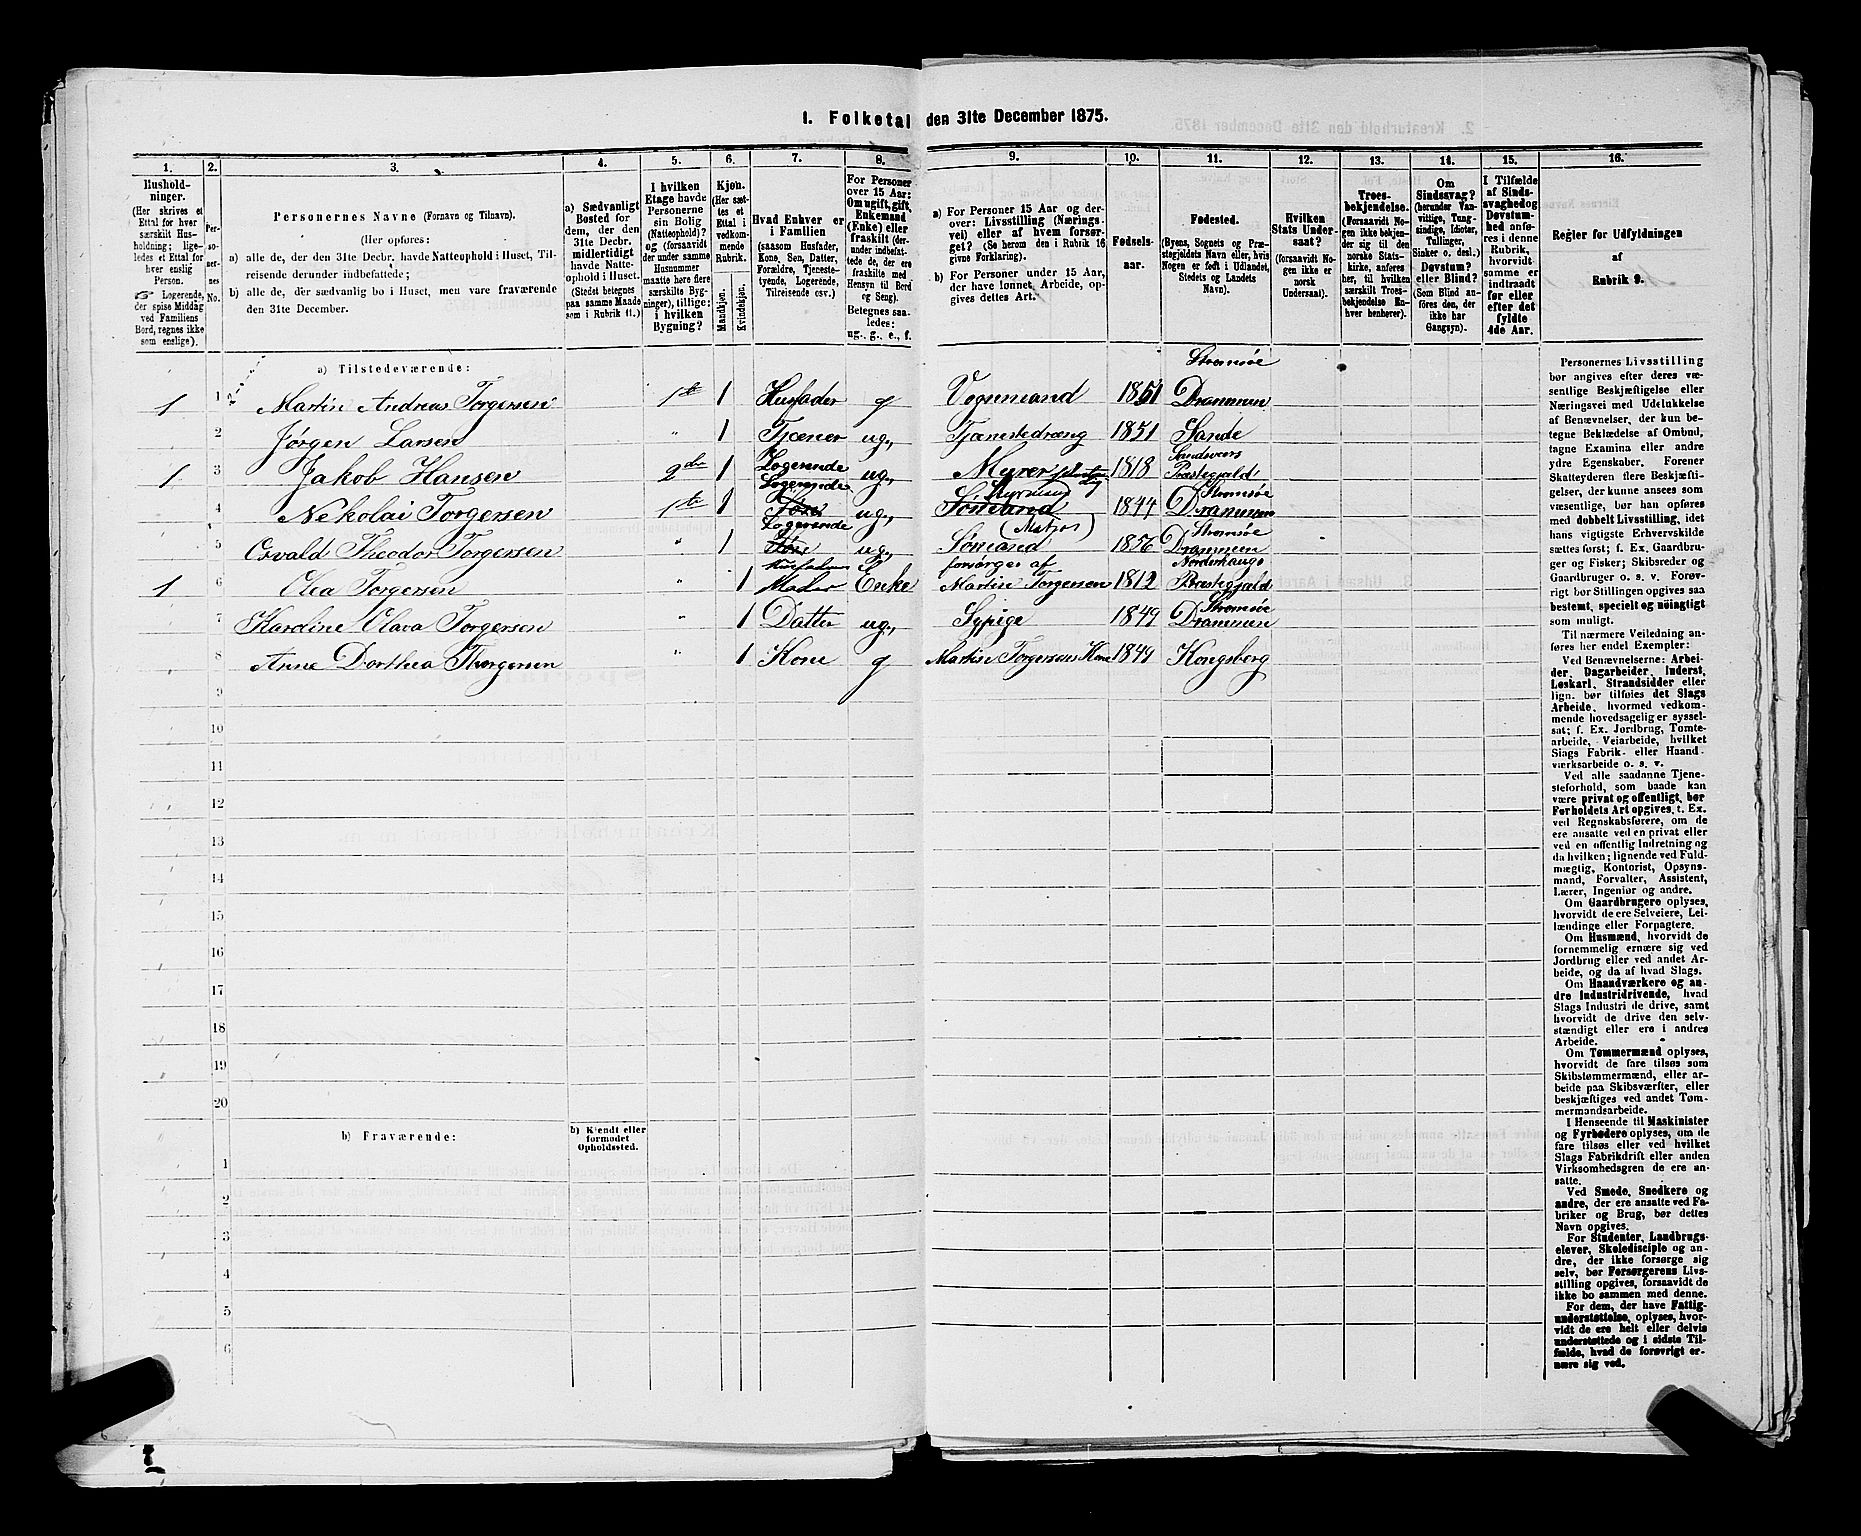 1. Folketal den 31te December 1875.
1. 2. 3. 4. 5. 6. 7. 8. 9. 10. 11. 12. 13. 14. 15. 16.
Husholdninger.
(Her skrives et
Ettal for hver
særskilt Husholdning;
ligeledes et Ettal for
hver enslig
Person.
Logerende,
der spise Middag
ved Familiens
Bord, regnes ikke
som enslige).
Personernes No.
Personernes Navne (Fornavn og Tilnavn).
(Her opføres:
a) alle de, der den 31te Decbr. havde Natteophold i Huset, Tilreisende derunder indbefattede;
b) alle de, der sædvanlig bo i Huset, men vare fraværende
den 31te December.
a) Sædvanligt
Bosted for
dem, der den
31te Decbr.
midlertidigt
havde Natteophold i Huset.
(Stedet betegnes
paa samme Maade
som i Rubrik 11.)
I hvilken
Etage havde
Personerne
sin Bolig
(Natteophold)?
og (forsaavidt
der under samme
Husnummer
maatte høre flere
særskilte Bygninger), tillige:
i hvilken
Bygning?
Kjøn.
(Her sættes et
Ettal i
vedkommende
Rubrik.
Mandkjøn.
Kvindekjøn.
Hvad Enhver er
i Familien
(saasom Husfader,
Kone, Søn, Datter,
Forældre, Tjenestetyende, Logerende,
Tilreisende osv.)
For Personer
over 15 Aar:
Om ugift, gift,
Enkemand
(Enke) eller
fraskilt (derunder indbefattede de, der ere
fraskilte med
Hensyn til Bord
og Seng).
Betegnes saaledes:
ug., g., e., f.
a) For Personer 15 Aar og derover: Livsstilling (Næringsvei) eller af hvem forsørget? (Se herom den i Rubrik 16
givne Forklaring).
b) For Personer under 15 Aar,
der have lønnet Arbeide, opgives dettes Art.
Fødselsaar.
Fødested.
(Byens, Sognets og Præstegjeldets Navn eller, hvis
Nogen er født i Udlandet,
Stedets og Landets
Navn).
Hvilken
Stats Undersaat?
(forsaavidt Nogen ikke er
norsk
Undersaat).
Troesbekjendelse.
(Forsaavidt Nogen ikke bekjender sig til den
norske Statskirke, anføres
her, til hvilken
særskilt Troesbekjendelse Enhver benhører).
Om
Sindssvag?
(herunder Vanvittige, Tungsindige, Idioter,
Tullinger,
Sinker o. desl.)
Døvstum?
eller Blind?
(Som Blind anføres den, der
ikke har
Gangsyn).
I Tilfælde
af Sindssvaghed og
Døvstumhed anføres i denne
Rubrik,
hvorvidt
samme er
indtraadt
før eller
efter det
fyldte
4de Aar.
Regler for Udfyldningen
af
Rubrik 9.
a) Tilstedeværende:
1 1 Martin Andreas Torgersen 1ste 1 Husfader g Vognmand 1851 Strømsøe Drammen
2 Jørgen Larsen " 1 Tjener ug., Tjenestedreng 1851 Sande
1 3 Jakob Hansen 2den 1 Logerende ug., Murer 1818 Sandsvers Præstegjeld
4 Nekolai Torgersen 1ste 1 Logerende Søn ug., Styrmand Sømand 1844 Strømsøe Drammen
5 Osvald Theodor Torgersen " 1 Logerende Søn ug., Sømand (Matros) 1856 Strømsøe Drammen
1 6 Olea Torgersen " 1 Husfaderens Moder Enke forsørges af Martin Torgersen 1812 Norderhaugs Præstegjald
7 Karoline Olava Torgersen " 1 Datter ug., Sypige 1849 Strømsøe Drammen
8 Anne Dorthea Thorgersen " 1 Kone g Martin Torgersens Kone 1849 Kongsberg
9
10
11
12
13
14
15
16
17
18
19
20
b) Fraværende:
b) Kjendt eller
formodet
Opholdssted.
1
2
3
4
5
6
Personernes Livsstilling
bør angives efter deres væsentlige Beskjæftigelse eller
Næringsvei med Udelukkelse
af Benævnelser, der kun betegne Beklædelse af Ombud,
tagne Examina eller andre
ydre Egenskaber. Forener
Skatteyderen flere Beskjæftigelser, der kunne ansees som
væsentlige, bør han opføres
med dobbelt Livsstilling, idet
hans vigtigste Erhvervskilde
sættes først; f. Ex. Gaardbruger og Fisker; Skibsreder og
Gaardbruger o. s. v. Forøvrigt bør Stillingen opgives saa
bestemt, specielt og nöiagtigt
som muligt.
Til nærmere Veiledning anføres her endel Exempler:
Ved Benævnelserne: Arbeider, Dagarbeider, Inderst,
Løskarl, Strandsidder eller
lign. bør tilføies det Slags
Arbeide, hvormed vedkommende hovedsagelig er sysselsat; f. Ex. Jordbrug, Tømtearbeide, Veiarbeide, hvilket
Slags Fabrik- eller Haandværksarbeide o. s. v.
Ved alle saadanne Tjenesteforhold, som baade kan
være privat og offentligt, bør
Forholdets Art opgives, t. Ex.
ved Regnskabsførere, om de
ere ansatte ved en privat eller
ved en offentlig Indretning og
da hvilken; lignende ved Fuldmægtig, Kontorist, Opsynsmand, Forvalter, Assistent,
Lærer, Ingeniør og andre.
Om Gaardbrugere oplyses,
hvorvidt de ere Selveiere, Leilændinge eller Forpagtere.
Om Husmænd, hvorvidt de
fornemmelig ernære sig ved
Jordbrug eller ved andet Arbeide, og da af hvad Slags.
Om Haandværkere og andre Industridrivende, hvad
Slags Industri de drive, samt
hvorvidt de drive den selvstændigt eller ere i andres
Arbeide.
Om Tømmermænd oplyses,
hvorvidt de fare tilsøs som
Skibstømmermænd, eller arbeide paa Skibsværfter, eller
beskjæftiges ved andet Tømmermandsarbeide.
I Henseende til Maskinister
og Fyrbødere oplyses, om de
fare tilsøs eller ved hvilket
Slags Fabrikdrift eller anden
Virksomhedsgren de ere ansatte.
Ved Smede, Snedkere og
andre, der ere ansatte ved Fabriker og Brug, bør dettes
Navn opgives.
For Studenter, Landbrugselever, Skoledisciple og andre, der ikke forsørge sig
selv, bør Forsørgerens Livsstilling opgives, forsaavidt de
ikke bo sammen med denne.
For dem, der have Fattigunderstøttelse, oplyses, hvorvidt de ere helt eller delvis
understøttede og i sidste Tilfælde, hvad de forøvrigt ernære sig ved.